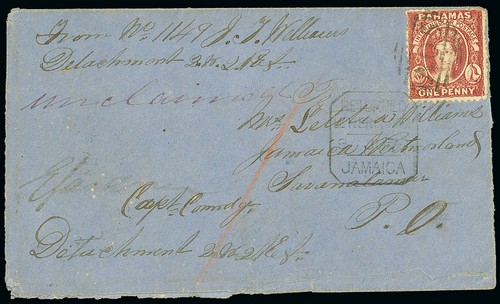 From No 1149 J. T. Williams
Detachment 2. W. 2 Rt.
unclaimed
BAHAMAS
INTERINSULAR POSTAGE
ONE PENNY
Mrs Leticia Williams
Jamaica Westmorland
Savanalamar
P. O.
JAMAICA
Capt. Commdg.
Detachment 2. W. 2 Rt.